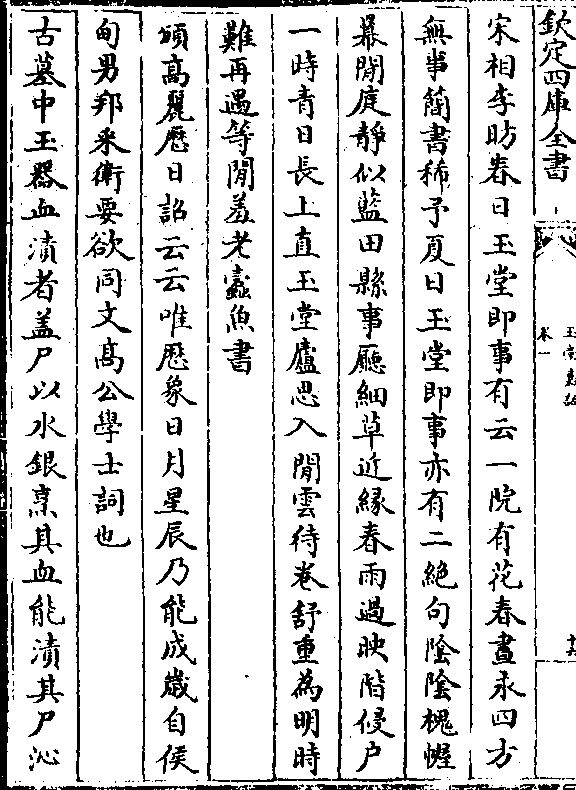 欽定四庫全書
宋相李昉春日玉堂即事有云一院有花春晝永四方
無事簡書稀予夏日玉堂即事亦有二絶句陰陰槐幄
幕閒庭靜似藍田縣事廳細草近緣春雨過映階侵户
一時青日長上直玉堂廬思入閒雲待卷舒重為明時
難再遇等閒羞老蠧魚書
頒高麗厯日詔云云唯厯象日月星辰乃能成歲自侯
甸男邦采衛要欲同文高公學士詞也
古墓中玉器血漬者盖尸以水銀烹其血能漬其尸沁